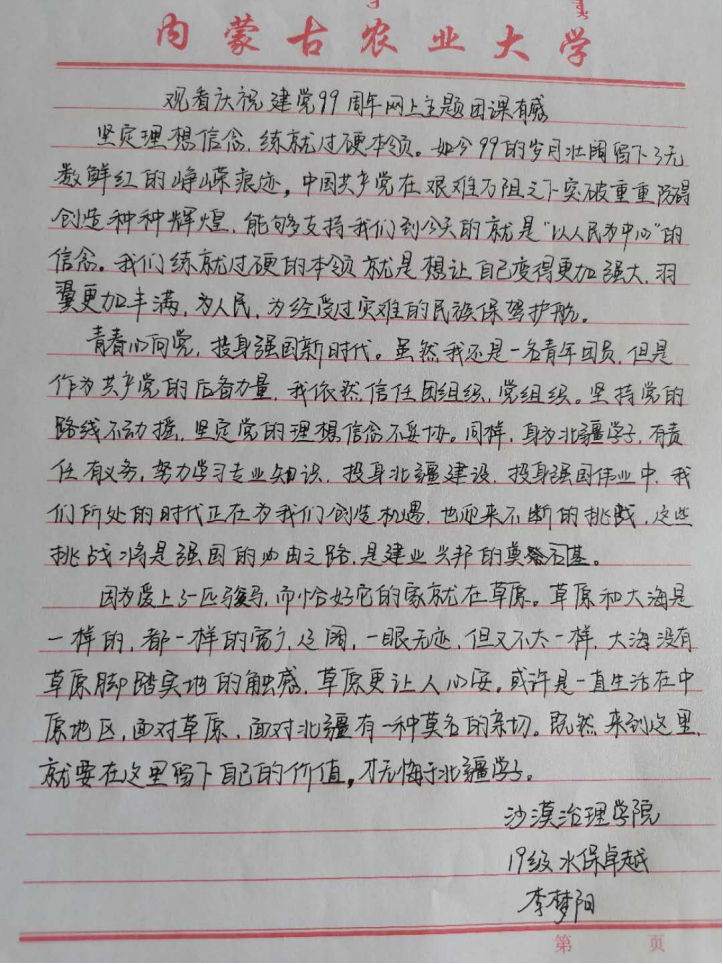 内蒙古农业大学
观看庆祝建党99周年网上主题团课有感
坚定理想信念，练就过硬本领。如今99的岁月壮阔留下了无
数鲜红的峥嵘痕迹，中国共产党在艰难万阻之下突破重重防碍
创造种种辉煌，能够支持我们到今天的就是“以人民为中心”的
信念。我们练就过硬的本领就是想让自己变得更加强大，羽
翼更加丰满，为人民，为经受过灾难的民族保驾护航。
青春心向党，投身强国新时代。虽然我还是一名青年团员，但是
作为共产党的后备力量，我依然信任团组织，党组织。坚持党的
路线不动摇，坚定党的理想信念不妥协。同样，身为北疆学子，有责
任有义务，努力学习专业知识，投身北疆建设，投身强国伟业中，我
们所处的时代正在为我们创造机遇，也迎来不断的挑战，这些
挑战将是强国的必由之路，是建业兴邦的奠基石基。
因为爱上了一匹骏马，而恰好它的家就在草原。草原和大海是
一样的，都一样的宽广，辽阔，一眼无迹，但又不太一样，大海没有
草原脚踏实地的触感，草原更让人心安。或许是一直生活在中
原地区，面对草原，面对北疆有一种莫名的亲切。既然来到这里，
就要在这里留下自己的价值，才无悔于北疆学子。
沙漠治理学院
19级水保卓越
李梦阳
第 页